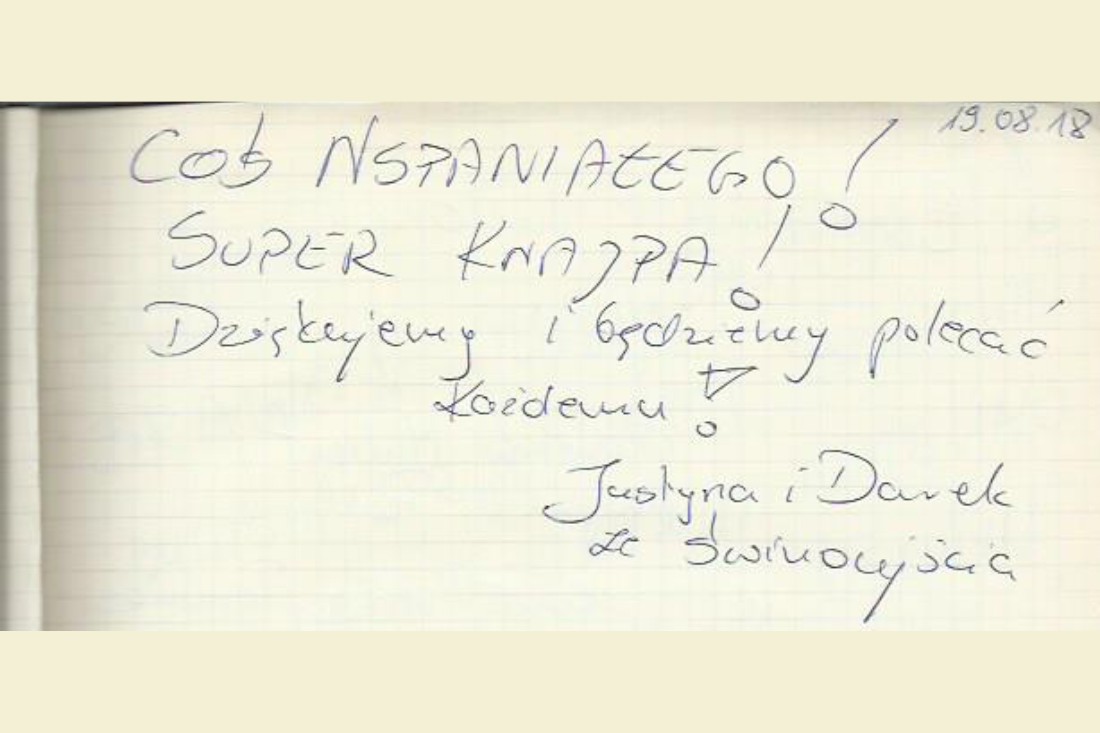 19.08.18
COŚ WSPANIAŁEGO!
SUPER KNAJPA!
Dziękujemy i będziemy polecać
każdemu!
Justyna i Darek
ze Świnoujścia